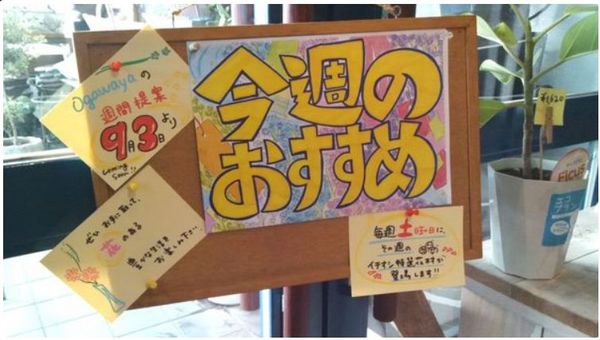 Ogawayaの
週間提案
9月3日より
Coming
Soon!!
今週の
おすすめ
ぜひ お手に取って、
花のある
豊かな生活を
お楽しみ下さい。
毎週土曜日に、
その週の
イチオシ特選花材が
登場します!!
¥1,620
Ficus